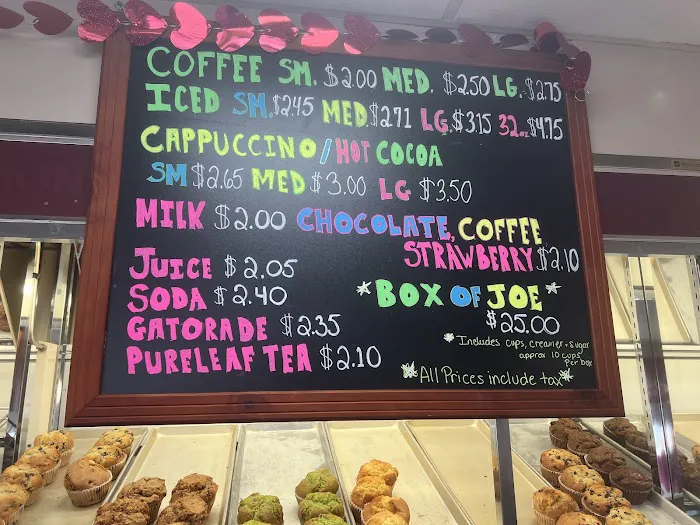 COFFEE SM. $2.00 MED. $2.50 LG. $2.75
ICED SM. $2.45 MED $2.71 LG. $3.15 32oz $4.75
CAPPUCCINO/HOT COCOA
SM $2.65 MED $3.00 LG $3.50
MILK $2.00 CHOCOLATE, COFFEE
STRAWBERRY $2.10
JUICE $2.05
SODA $2.40
*BOX OF JOE*
$25.00
GATORADE $2.35
*Includes cups, creamer + sugar
approx 10 cups
Per box
PURELEAF TEA $2.10
*All Prices include tax*